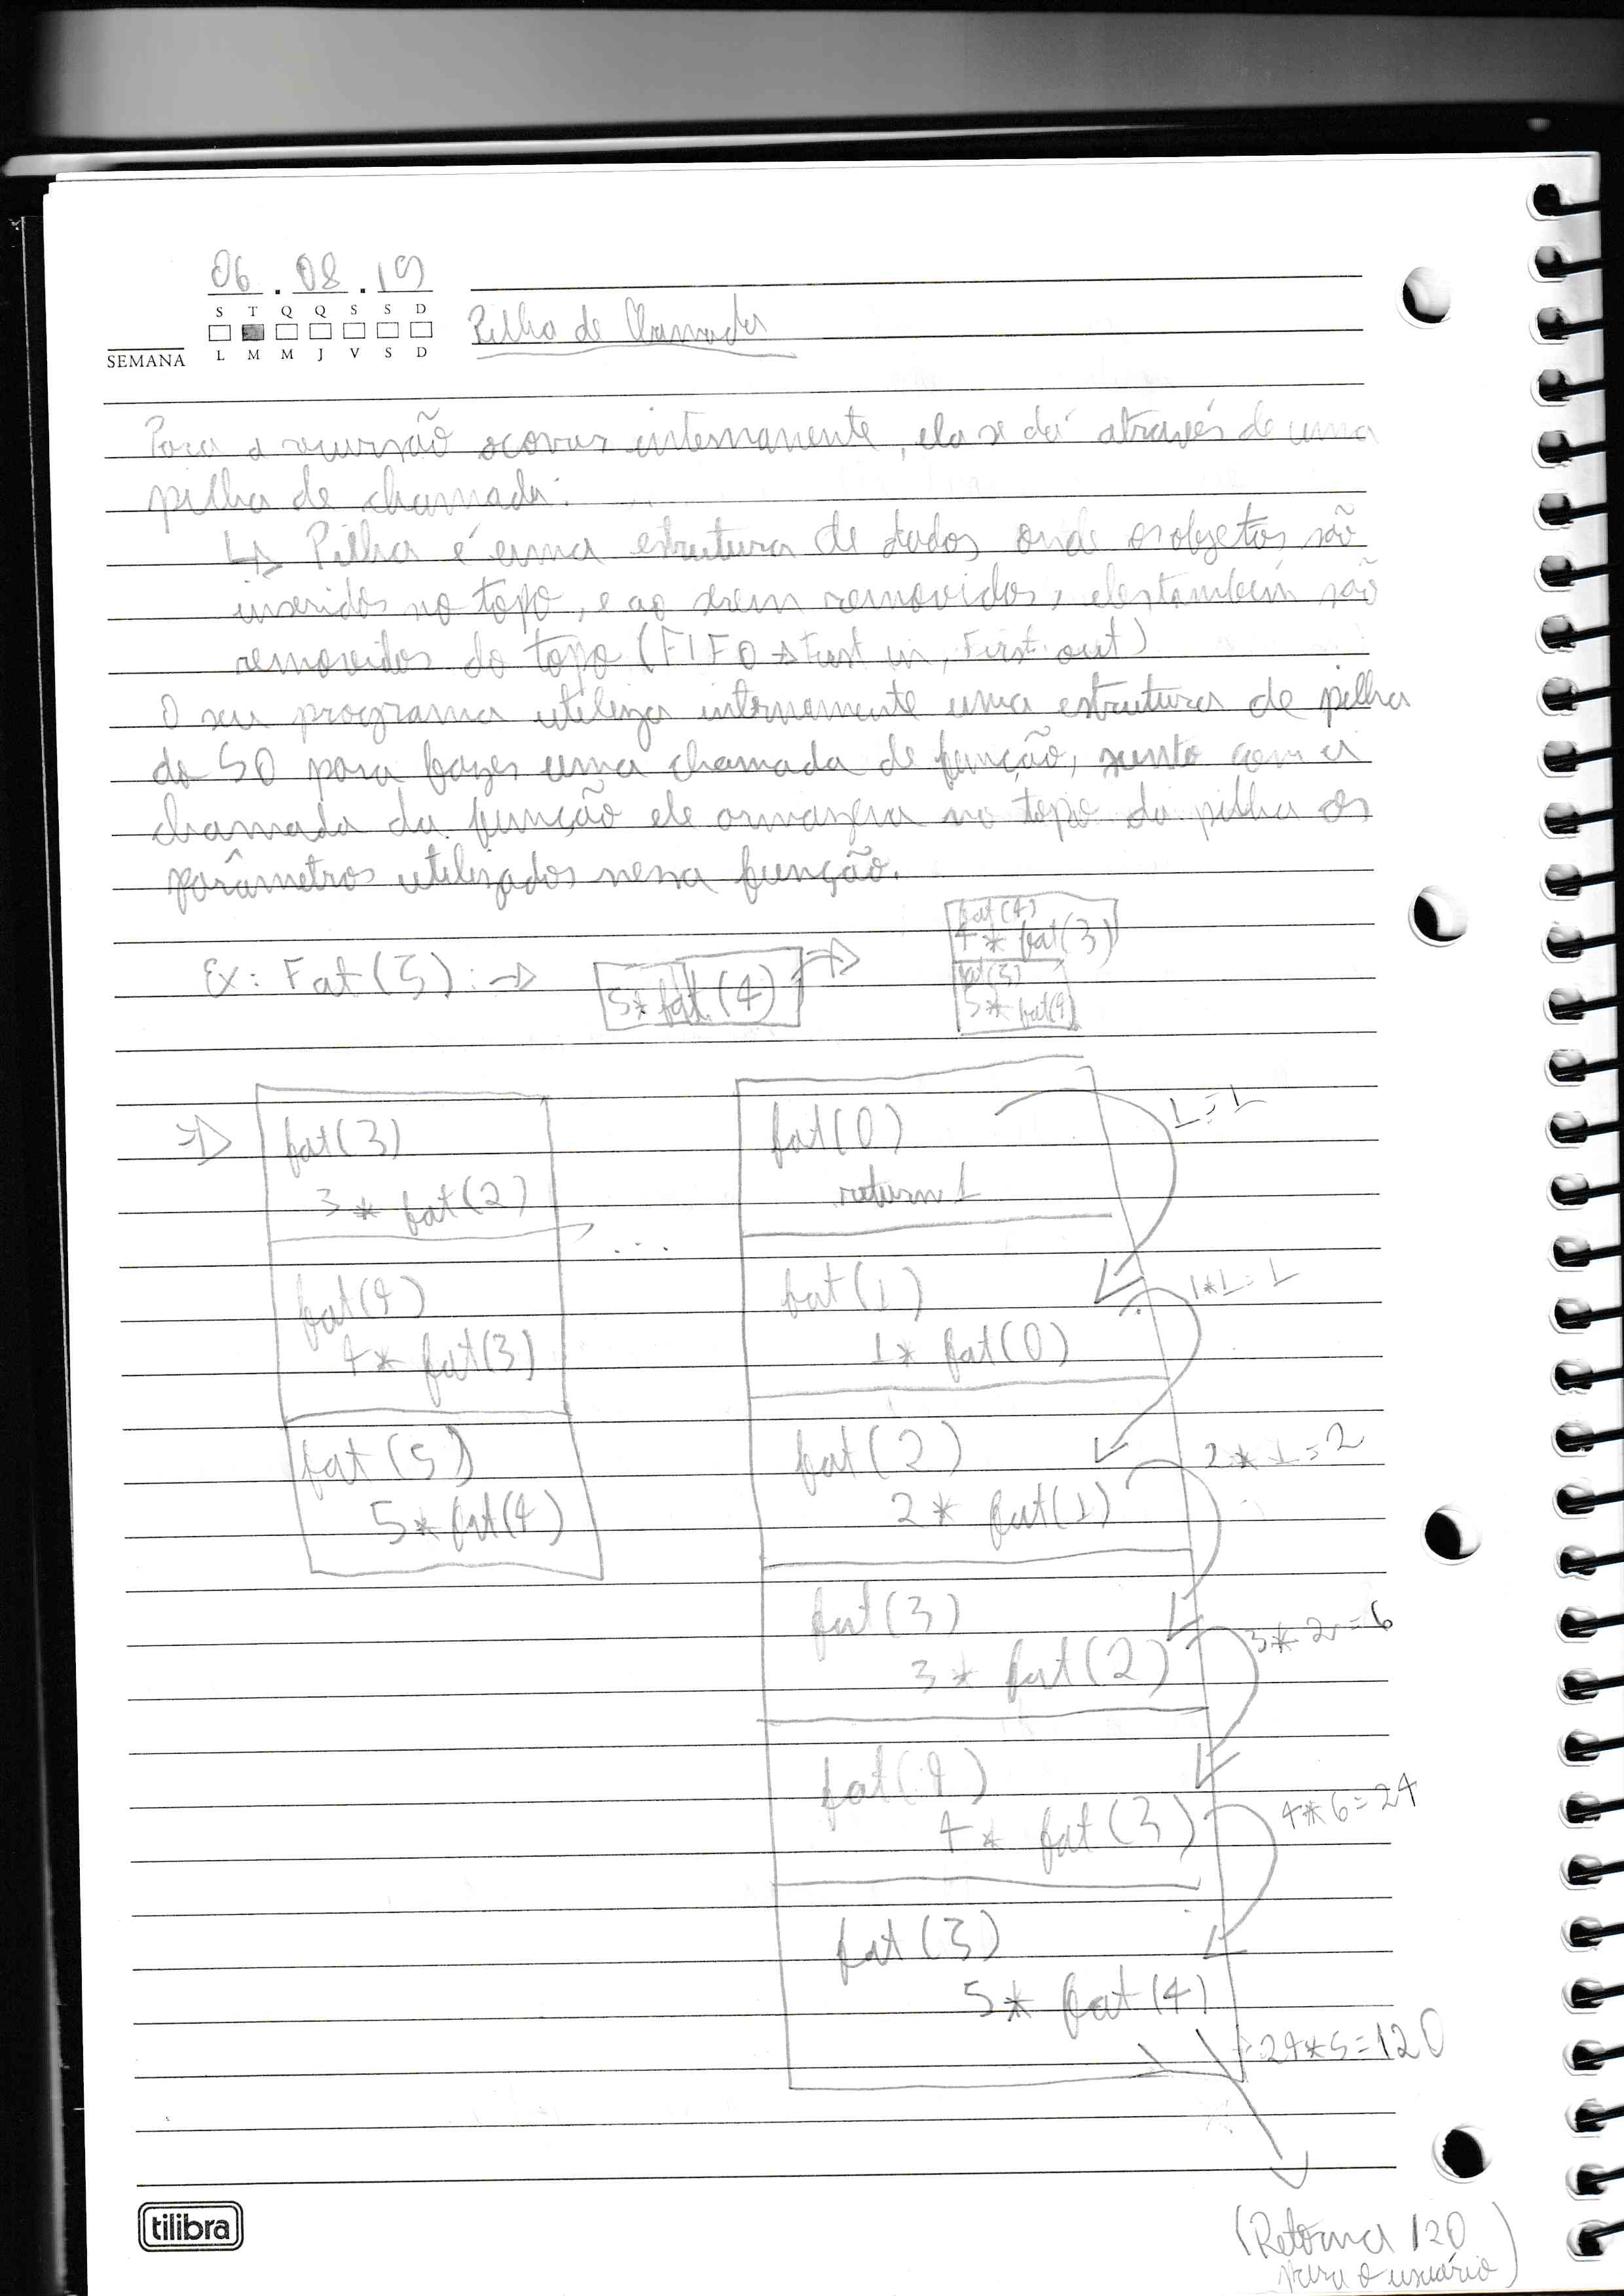 06 . 08 . 19
S T Q Q S S D
SEMANA L M M J V S D
Pilha de Chamada
Para a recursão ocorrer internamente, ela se dá através de uma
pilha de chamada.
↳ Pilha é uma estrutura de dados onde os objetos são
inseridos no topo, e ao serem removidos, eles também são
removidos do topo (FIFO → First in, First out)
O seu programa utiliza internamente uma estrutura de pilha
do SO para fazer uma chamada de função, junto com a
chamada da função ele armazena no topo da pilha os
parâmetros utilizados nessa função.
Ex: Fat(5): → 5 * fat(4) →
fat(4)
4 * fat(3)
fat(5)
5 * fat(4)
⇒ fat(3)
3 * fat(2)
fat(4)
4 * fat(3)
fat(5)
5 * fat(4)
...
fat(0)
return 1
1=1
fat(1)
1 * fat(0)
1*1=1
fat(2)
2 * fat(1)
2*1=2
fat(3)
3 * fat(2)
3*2=6
fat(4)
4 * fat(3)
4*6=24
fat(3)
5 * fat(4)
24*5=120
(Retorna 120
para o usuário)
tilibra